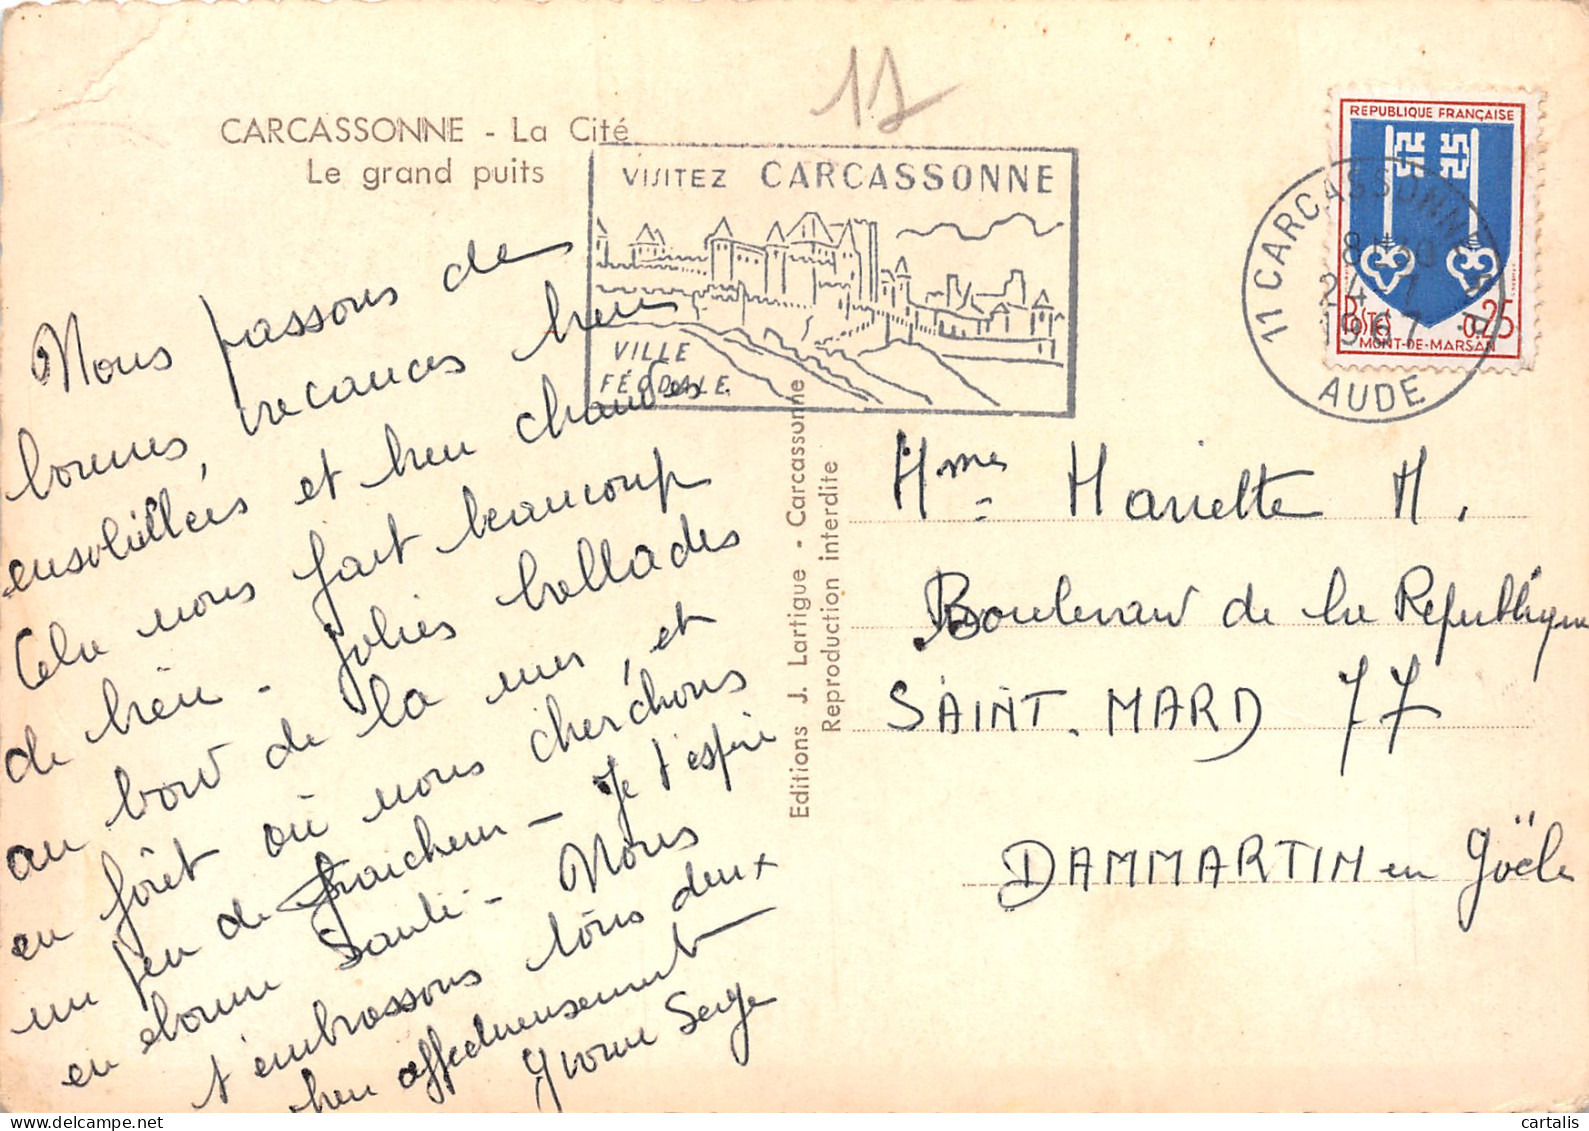 11
CARCASSONNE - La Cité
Le grand puits
VISITEZ CARCASSONNE
VILLE
FÉODALE
REPUBLIQUE FRANÇAISE
POSTES 0,25
MONT-DE-MARSAN
11 CARCASSONNE R.P.
24-7
1967
AUDE
Nous passons de
bonnes vacances bien
ensoleillées et bien chaudes
Cela nous fait beaucoup
de bien - jolies ballades
au bord de la mer, et
en forêt où nous cherchons
un peu de fraicheur - Je t'espère
en bonne santé - Nous
t'embrassons tous deux
bien affectueusement
Yvonne Serge
Editions J. Lartigue - Carcassonne
Reproduction interdite
Mme Mariette M.
Boulevard de la République
SAINT. MARD 77
DAMMARTIN en Goële
cartalis